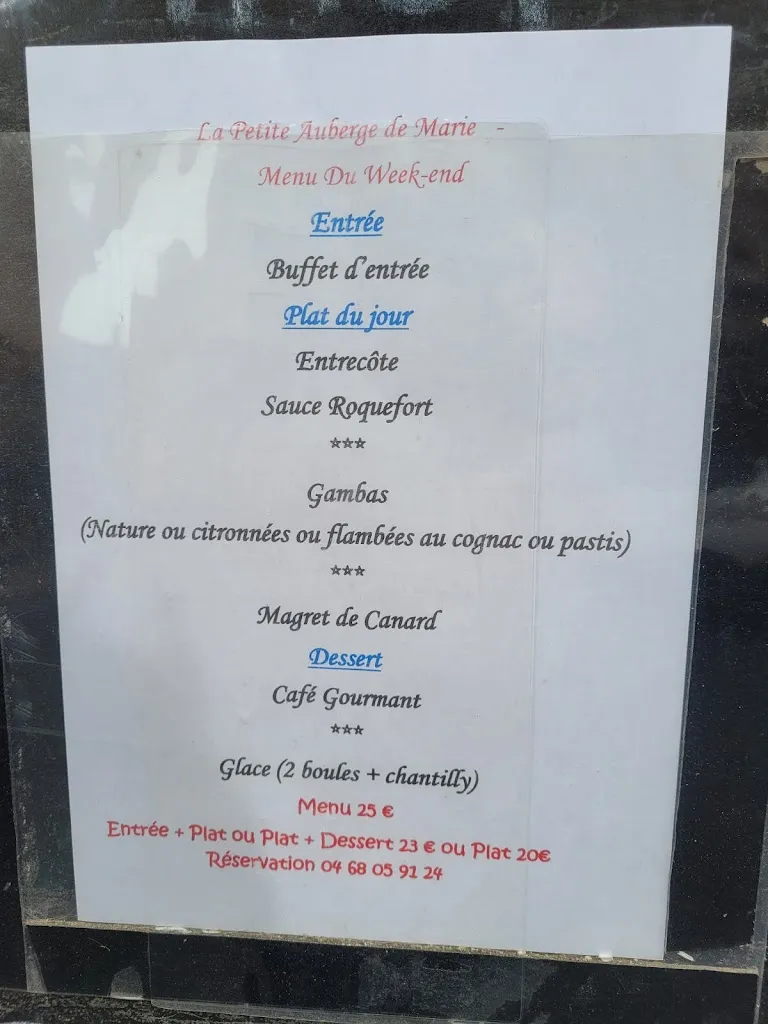 La Petite Auberge de Marie -
Menu Du Week-end
Entrée
Buffet d'entrée
Plat du jour
Entrecôte
Sauce Roquefort
***
Gambas
(Nature ou citronnées ou flambées au cognac ou pastis)
***
Magret de Canard
Dessert
Café Gourmant
***
Glace (2 boules + chantilly)
Menu 25 €
Entrée + Plat ou Plat + Dessert 23 € ou Plat 20€
Réservation 04 68 05 91 24